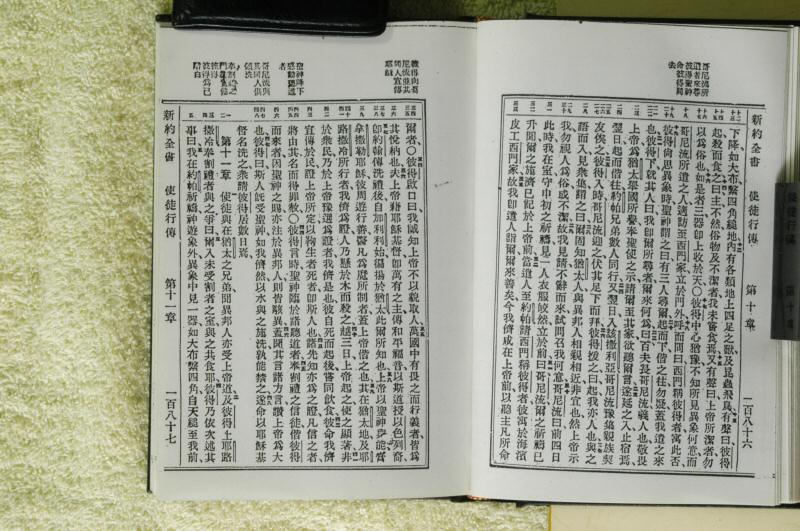 新約全書
使徒行傳
第十章
一百八十六
下降如大布繫四角縋地內有各類地上四足之獸及昆蟲飛鳥有聲曰彼得
起殺而食之曰主不然俗物及不潔者我未嘗食焉又有聲曰上帝所潔者勿
以為俗也如是者三器卽上收於天○彼得中心猶豫不知所見異象何意而
哥尼流所遣之人適訪至西門家立於門外呼而問曰西門稱彼得者寓此否
彼得尚思異象時聖神謂之曰有三人尋爾起而下偕之往勿疑蓋我遣之來
也彼得下就其人曰我卽爾所尋者爾來何為曰百夫長哥尼流義人也敬畏
上帝為猶太舉國所譽奉聖使之示請爾至其家欲聽爾言遂延之入止宿焉
翌日起而偕往約帕兄弟數人同行又翌日入該撒利亞哥尼流豫集親族契
友俟之彼得入時哥尼流迎之伏其足下而拜彼得扶之曰起我亦人也與之
語而入見衆集謂之曰爾固知猶太人與異邦人相親相近非宜也然上帝示
我勿視人為俗或不潔故我見請不辭而來試問召我何意哥尼流曰前四日
此時我在室守申初之祈禱見一人衣服皎然立於前曰哥尼流爾之祈禱已
升聞爾之施濟已記於上帝前當遣人至約帕請西門稱彼得者彼寓於海濱
皮工西門家故我卽遣人詣爾爾來善矣今我儕咸在上帝前以聽主凡所命
新約全書
使徒行傳
第十一章
一百八十七
爾者○彼得啟口曰我誠知上帝不以貌取人萬國中有畏之而行義者皆為
其悅納也夫上帝藉耶穌基督卽萬有之主傳和平福音以斯道授以色列裔
卽約翰傳洗禮後自加利利始徧揚於猶太此爾所知也上帝以聖神與能膏
拿撒勒耶穌彼周遊行善醫凡為魔所制者蓋上帝偕之也其在猶太地及耶
路撒冷所行者我儕為證人乃懸於木而殺之越三日上帝起之使之顯著非
於衆民乃於上帝豫選為證者我儕是也彼自死而起後嘗同飲食彼命我儕
宣傳於民證上帝所定以鞫生者死者卽斯人也諸先知亦為之證凡信之者
將由其名而得罪赦○彼得言時聖神臨於諸聽道者奉割禮之信徒偕彼得
而來者見聖神之賜亦注於異邦人則皆駭異蓋聞其言諸方言讚上帝為大
也彼得曰斯人旣受聖神如我儕然以水與之施洗孰能禁之遂命以耶穌基
督名洗之衆請彼得居數日焉
第十一章 使徒與在猶太之兄弟聞異邦人亦受上帝道及彼得上耶路
撒冷奉割禮者與之爭曰爾入未受割者之室與之共食耶彼得乃依次述其
事曰我在約帕祈禱神遊象外異象中見一器如大布繫四角自天縋至我前